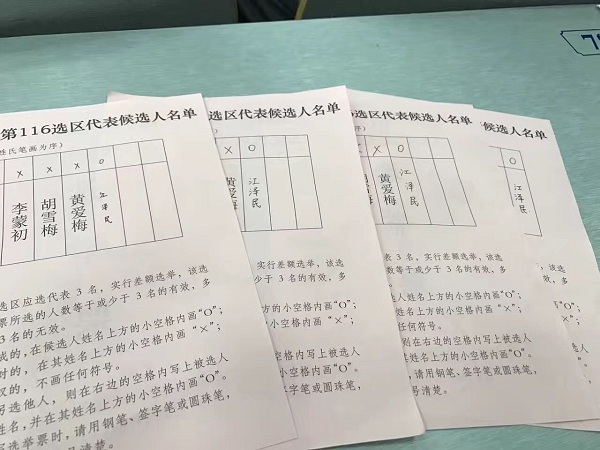 第116选区代表候选人名单
姓氏笔画为序)
X X X O
李蒙初 胡雪梅 黄爱梅 江泽民
选区应选代表 3 名，实行差额选举，该选
票所选的人数等于或少于 3 名的有效，多
3 名的无效。
成的，在候选人姓名上方的小空格内画“O”；
对的，在其姓名上方的小空格内画“×”；
权的，不画任何符号。
另选他人，则在右边的空格内写上被选人
姓名，并在其姓名上方的小空格内画“O”。
写选举票时，请用钢笔、签字笔或圆珠笔，
清楚。
选区代表候选人名单
X O
黄爱梅 江泽民
实行差额选举，该选
少于 3 名的有效，多
的小空格内画“O”；
小空格内画“×”；
空格内写上被选人
小空格内画“O”。
签字笔或圆珠笔，
选区代表候选人名单
X O
黄爱梅 江泽民
名，实行差额选举，该选
等于或少于 3 名的有效，多
上方的小空格内画“O”；
方的小空格内画“×”；
任何符号。
则在右边的空格内写上被选人
姓名上方的小空格内画“O”。
请用钢笔、签字笔或圆珠笔，
清楚。
候选人名单
O
江泽民
选举，该选
有效，多
画“O”；
“×”；
被选人
“O”。
圆珠笔，